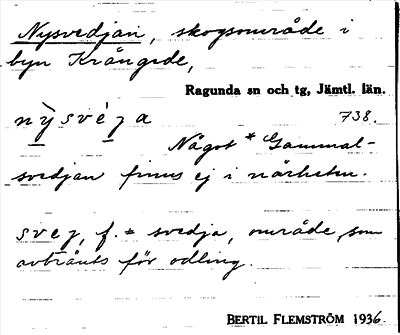 Nysvedjan, skogsområde i
byn Krångede,
Ragunda sn och tg, Jämtl. län.
nỳsvèja 738.
Något * Gammal-
svedjan finns ej i närheten.
svej, f. = svedja, område som
avbränts för odling.
BERTIL FLEMSTRÖM 1936.